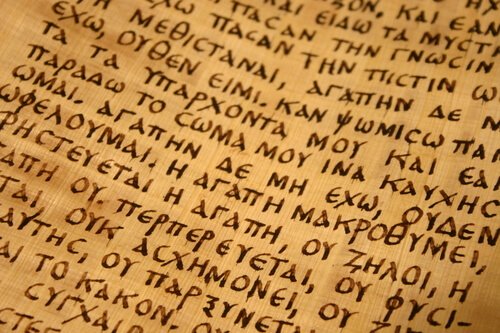 ΚΑΙ ΕΑΝ
ΚΑΙ ΕΙΔΩ ΤΑ ΜΥCΤ
ΕΧΩ ΠΑCΑΝ ΤΗΝ ΓΝΩCΙΝ
ΠΑCΑΝ ΤΗΝ ΠΙCΤΙΝ Ω
ΜΕΘΙCΤΑΝΑΙ, ΑΓΑΠΗΝ ΔΕ Μ
ΕΧΩ, ΟΥΘΕΝ ΕΙΜΙ. ΚΑΝ ΨΩΜΙCΩ ΠΑΝ
ΤΑ ΤΑ ΥΠΑΡΧΟΝΤΑ ΜΟΥ ΚΑΙ ΕΑ
ΠΑΡΑΔΩ ΤΟ CΩΜΑ ΜΟΥ ΙΝΑ ΚΑΥΧΗC
ΩΜΑΙ, ΑΓΑΠΗΝ ΔΕ ΜΗ ΕΧΩ, ΟΥΔΕΝ
ΩΦΕΛΟΥΜΑΙ. Η ΑΓΑΠΗ ΜΑΚΡΟΘΥΜΕΙ,
ΡΗCΤΕΥΕΤΑΙ Η ΑΓΑΠΗ, ΟΥ ΖΗΛΟΙ, Η
ΑΠΗ ΟΥ ΠΕΡΠΕΡΕΥΕΤΑΙ, ΟΥ ΦΥCΙ-
ΤΑΙ ΟΥΚ ΑCΧΗΜΟΝΕΙ, ΟΥ Ζ
ΑΥΤΗC, ΟΥ ΠΑΡΞΥΝΕΤΑΙ
ΑΙ ΤΟ ΚΑΚΟΝ, ΟΥ
CΥΓΧΑΙΡ